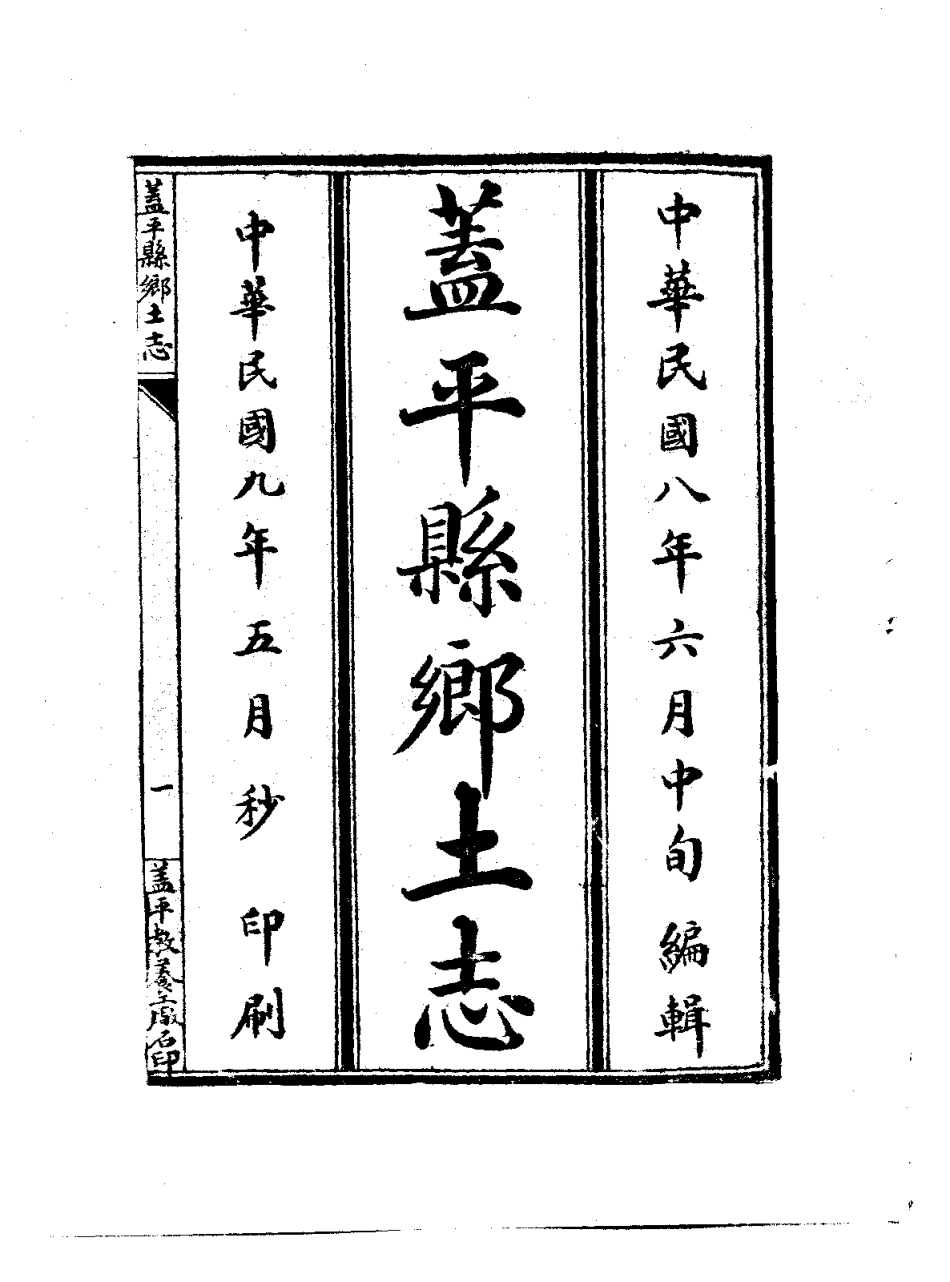 中華民國八年六月中旬 編輯
蓋平縣鄉土志
中華民國九年五月秒 印刷
蓋平縣鄉土志
一
蓋平教養工廠石印